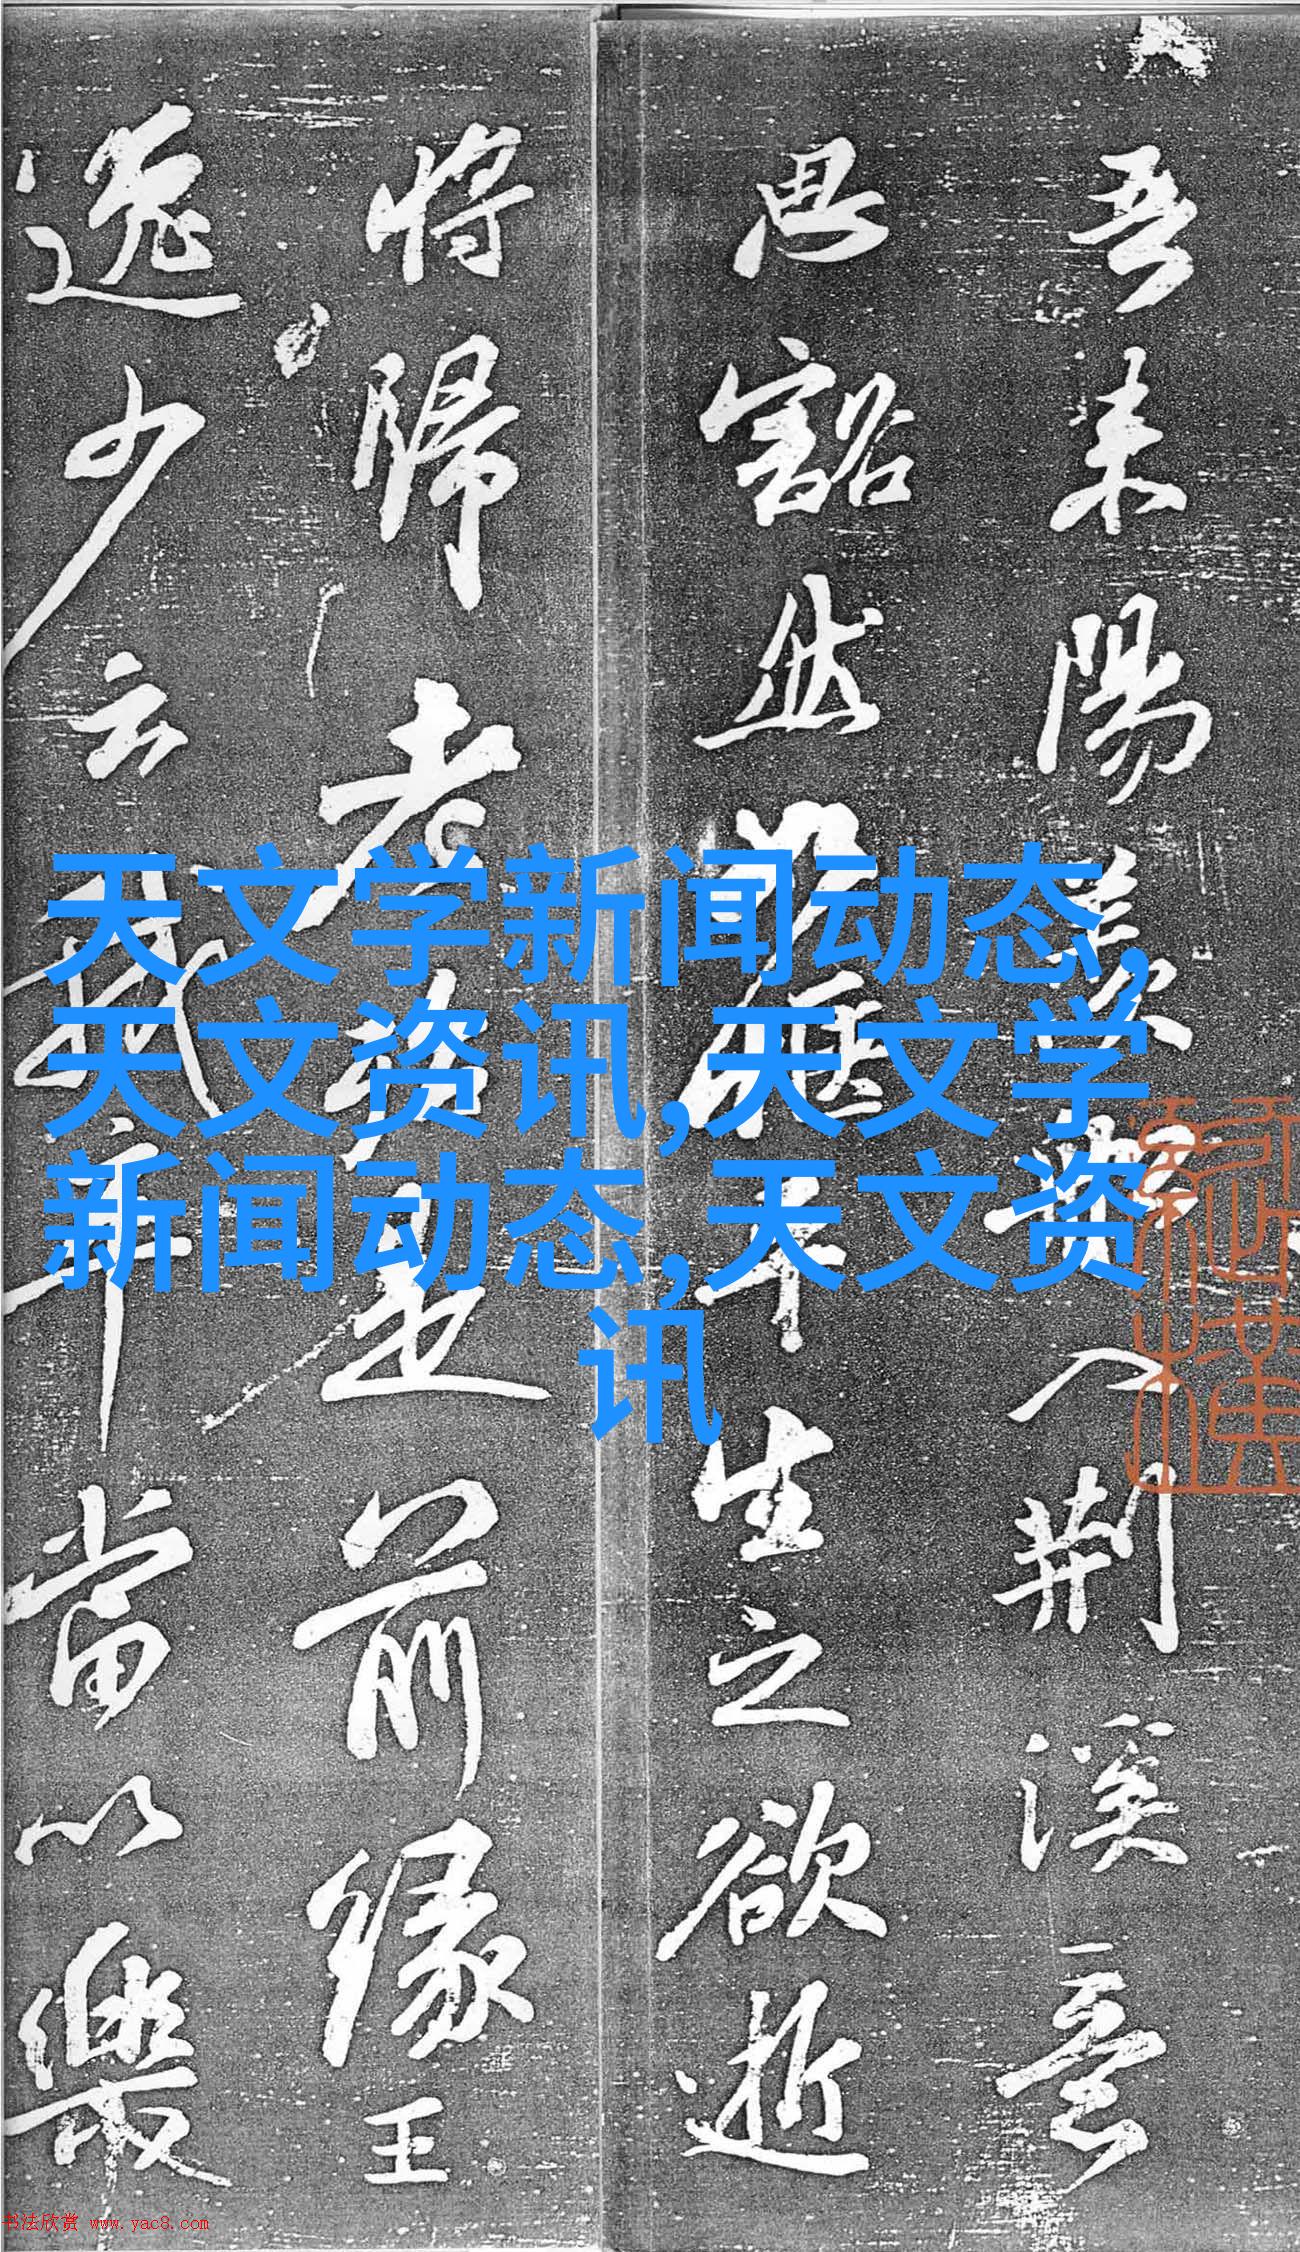 吾来陽羨船入荆溪意
思豁然如惬平生之欲逝
将歸老殆是前緣王
逸少云我卒當以樂
天文学新闻动态,
天文资讯,天文学
新闻动态,天文资
讯
书法欣赏 www.yac8.com